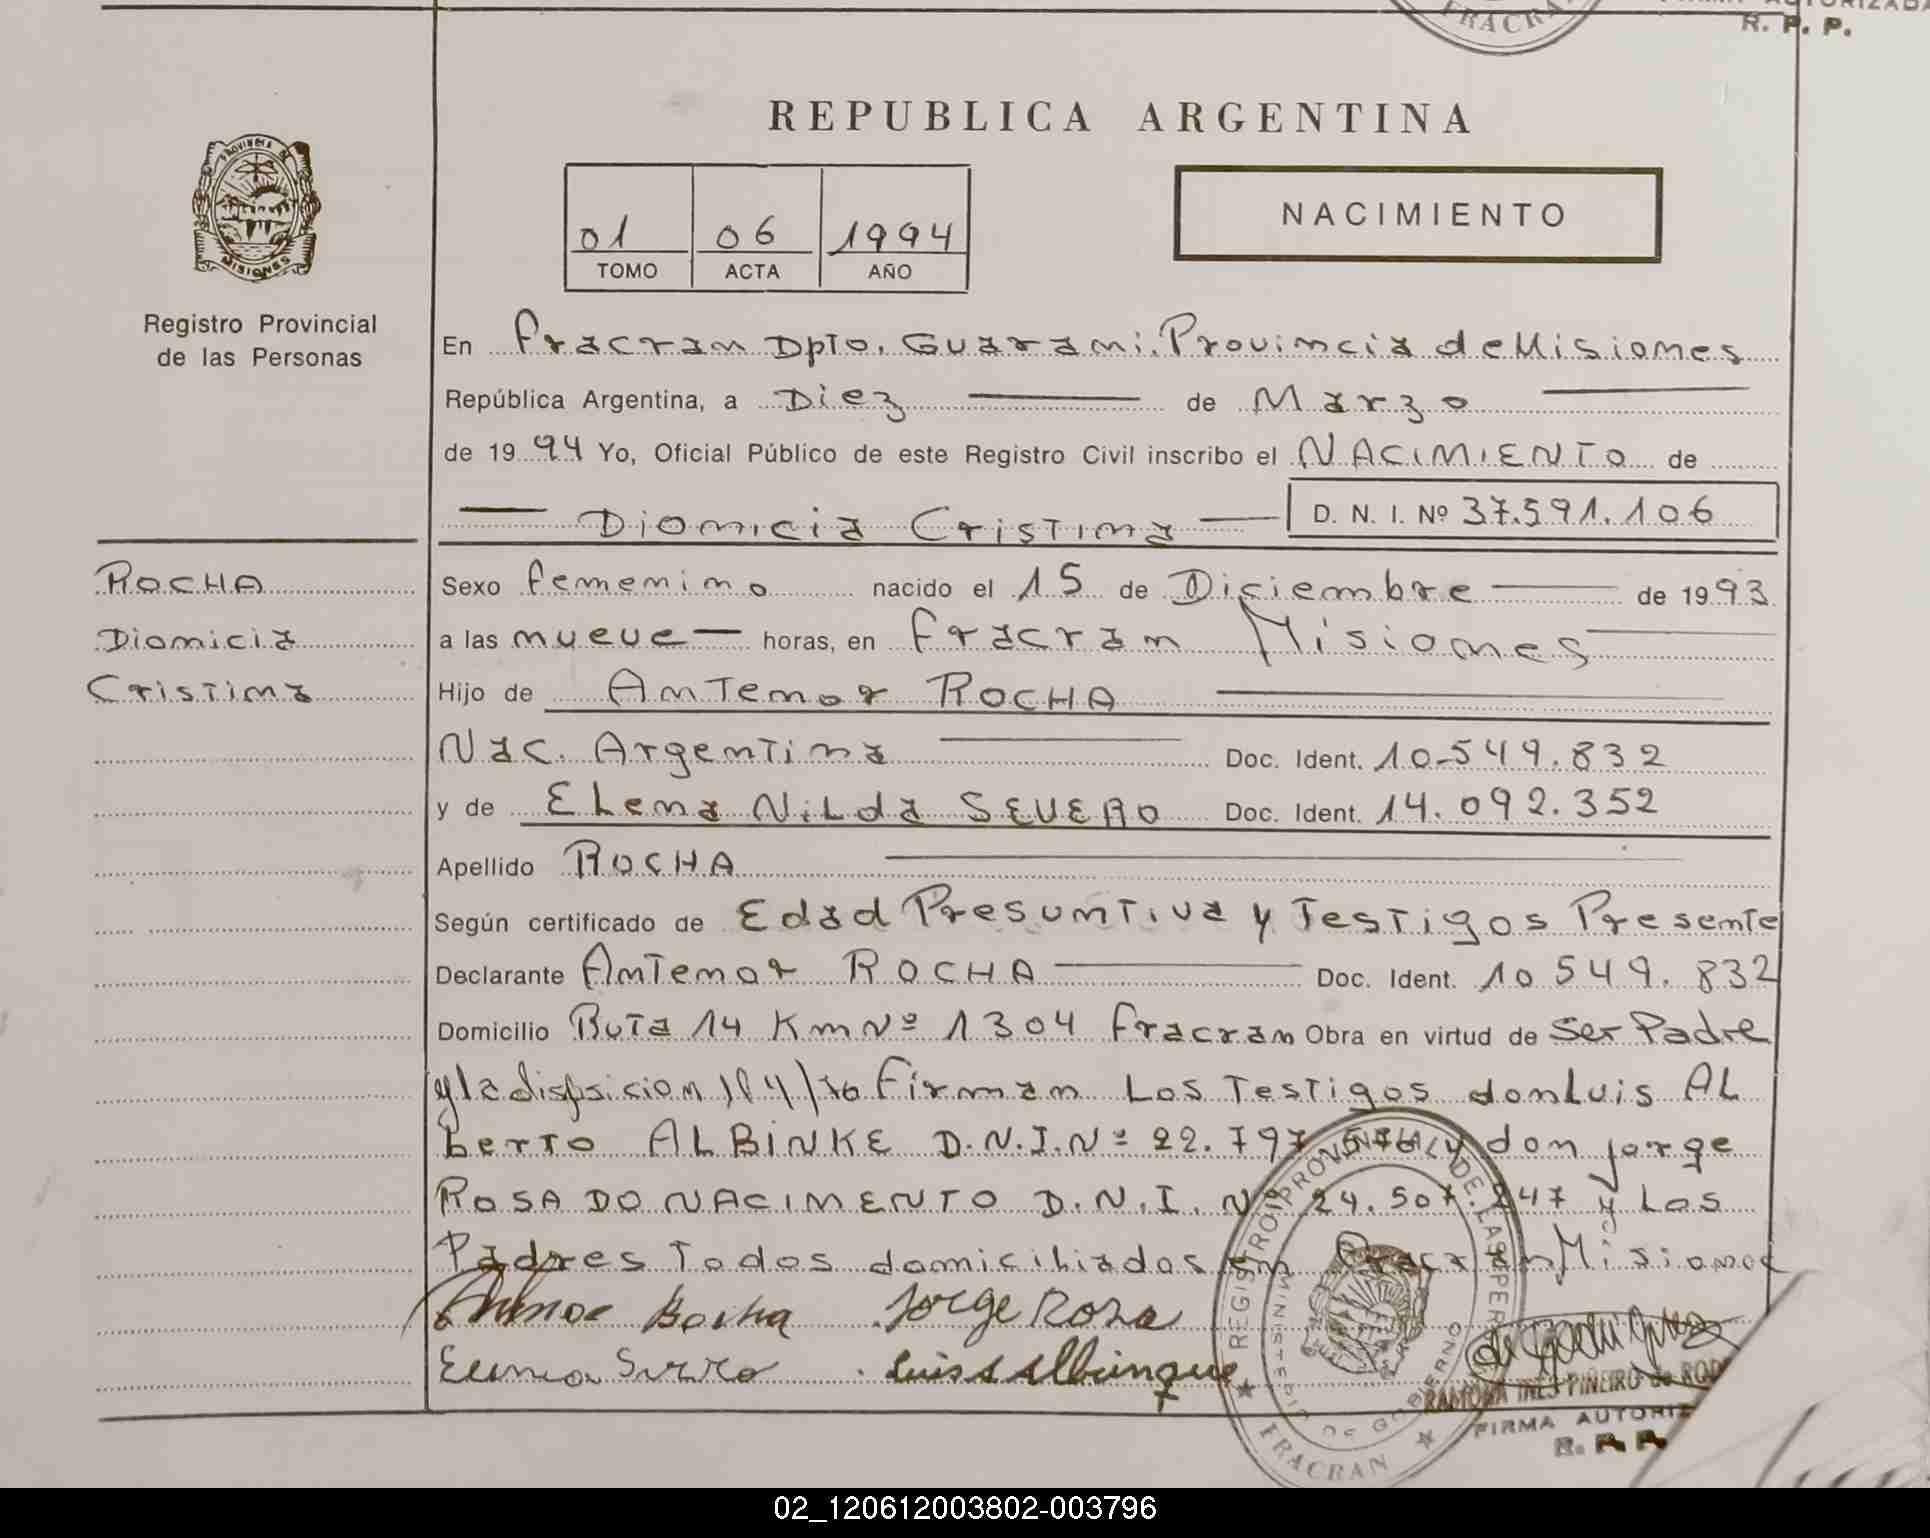 FRACRAN
R. P. P.
REPUBLICA ARGENTINA
PROVINCIA DE
MISIONES
01 06 1994
TOMO ACTA AÑO
NACIMIENTO
Registro Provincial
de las Personas
En Fracran Dpto. Guarani. Provincia de Misiones
República Argentina, a Diez de Marzo
de 1994 Yo, Oficial Público de este Registro Civil inscribo el NACIMIENTO de
Dionicia Cristina D. N. I. Nº 37.591.106
ROCHA
Dionicia
Cristina
Sexo femenino nacido el 15 de Diciembre de 1993
a las nueve horas, en Fracran Misiones
Hijo de Antenor ROCHA
Nac. Argentina Doc. Ident. 10.549.832
y de Elena Nilda SEVERO Doc. Ident. 14.092.352
Apellido ROCHA
Según certificado de Edad Presuntiva y Testigos Presente
Declarante Antenor ROCHA Doc. Ident. 10 549.832
Domicilio Ruta 14 Km Nº 1304 Fracran Obra en virtud de Ser Padre
y la Firman Los Testigos don Luis AL
berto ALBINKE D.N.I. Nº 22.797 y don jorge
ROSA DO NACIMENTO D.N.I. Nº 24.507 247 y Los
Padres Todos domiciliados en Fracran Misiones
Rocha Jorge Rosa
Luis A Albinque
REGISTRO PROVINCIAL DE LAS PER
MINISTERIO DE GOBERNO
FRACRAN
RAMONA INES PIÑEIRO de ROD
FIRMA AUTORIZ
R. P. P.
02_120612003802-003796